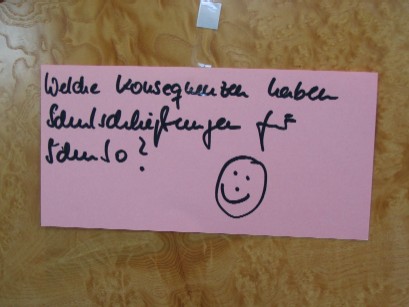 Welche Konsequenzen haben
Schulschließungen für
SchuSo?